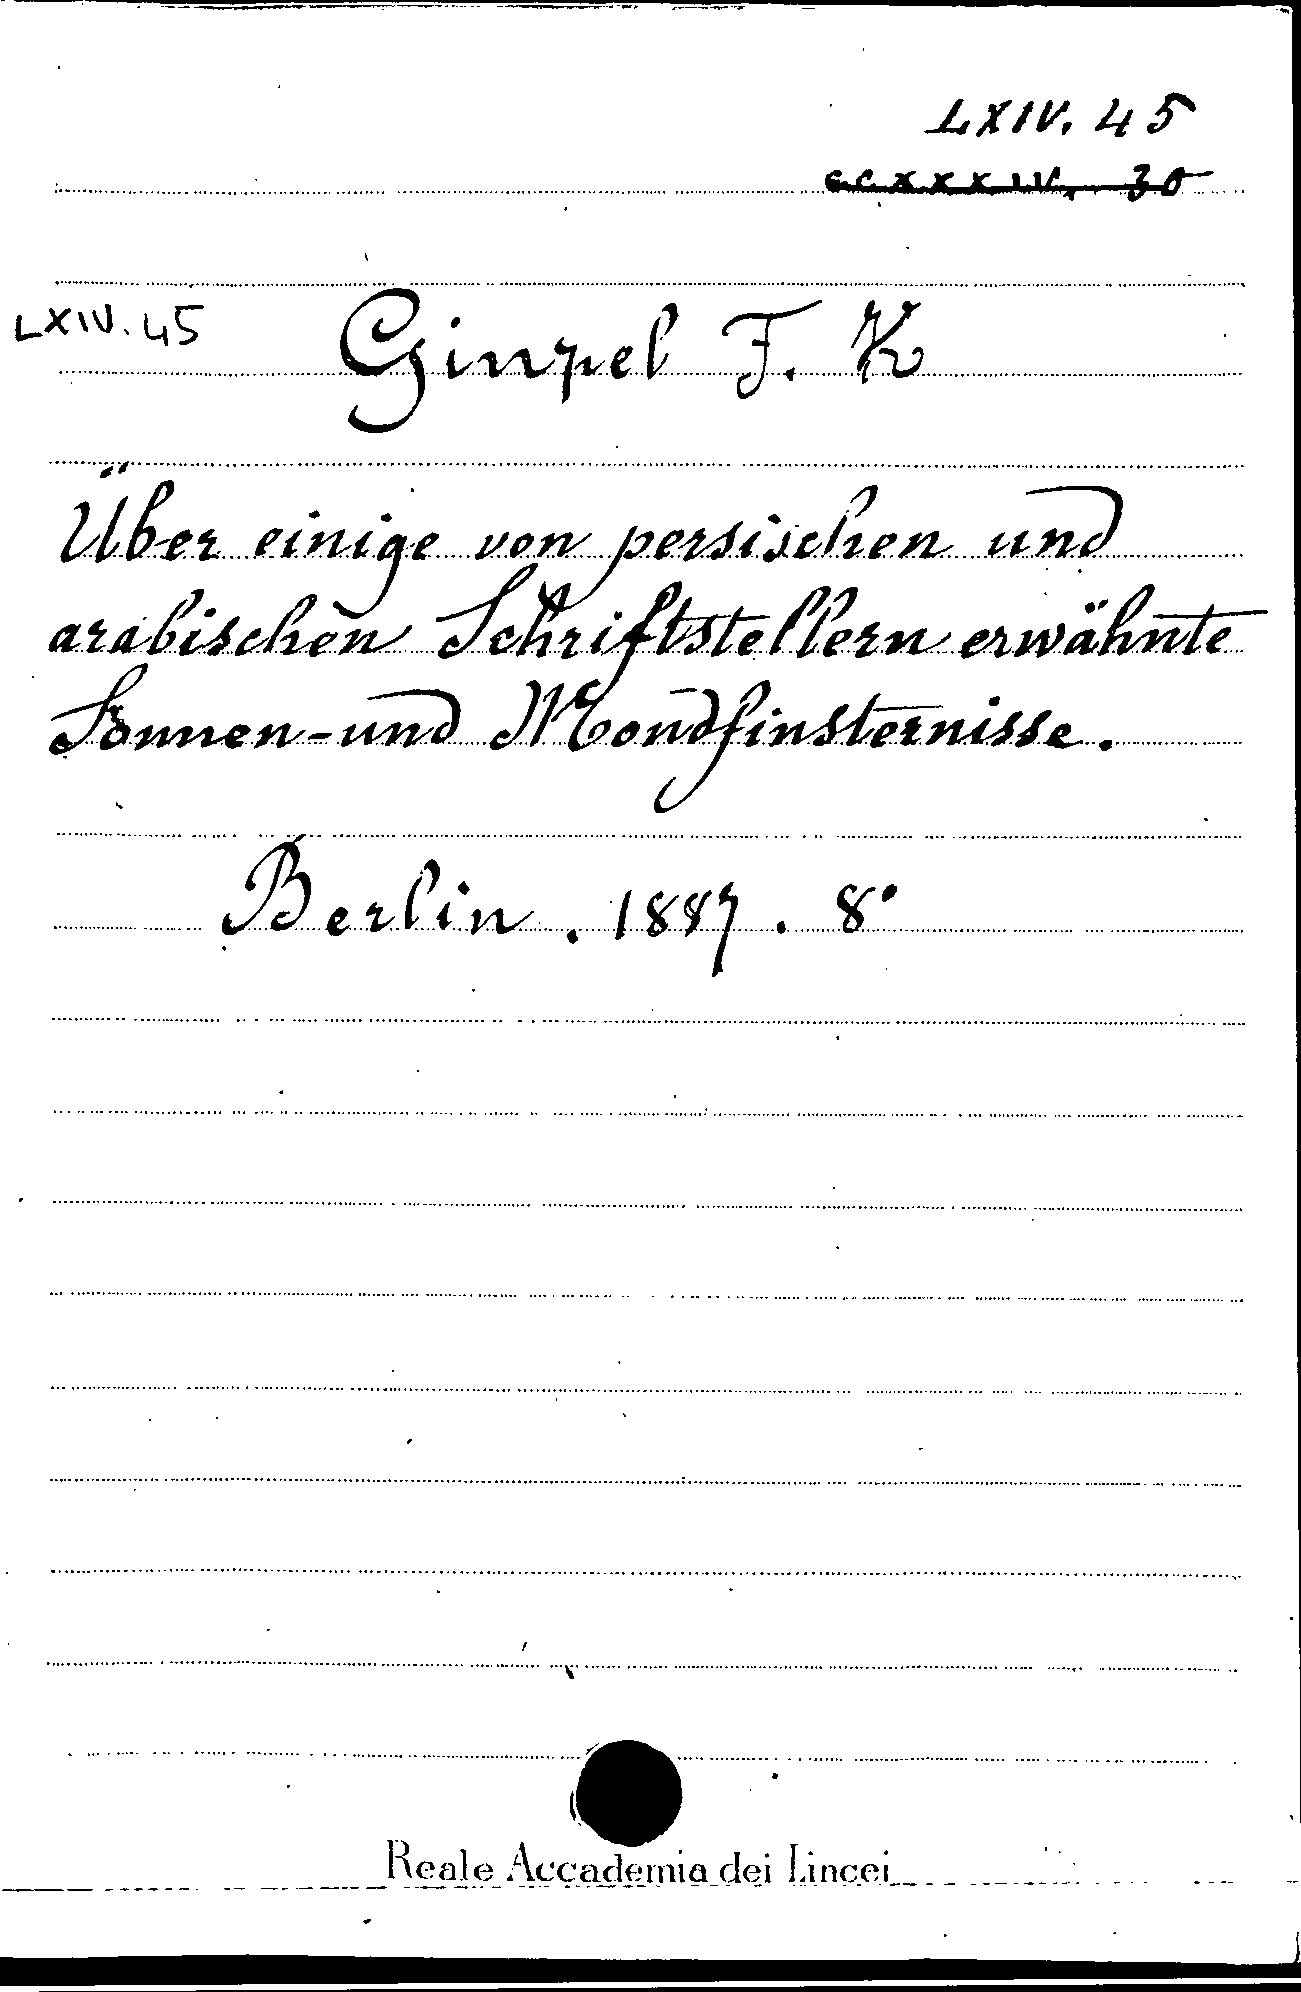 LXIV. 45
CCXXXIV. 30
LXIV. 45
Ginzel F. K
Über einige von persischen und
arabischen Schriftstellern erwähnte
Sonnen-und Mondfinsternisse.
Berlin. 1887. 8°
Reale Accademia dei Lincei